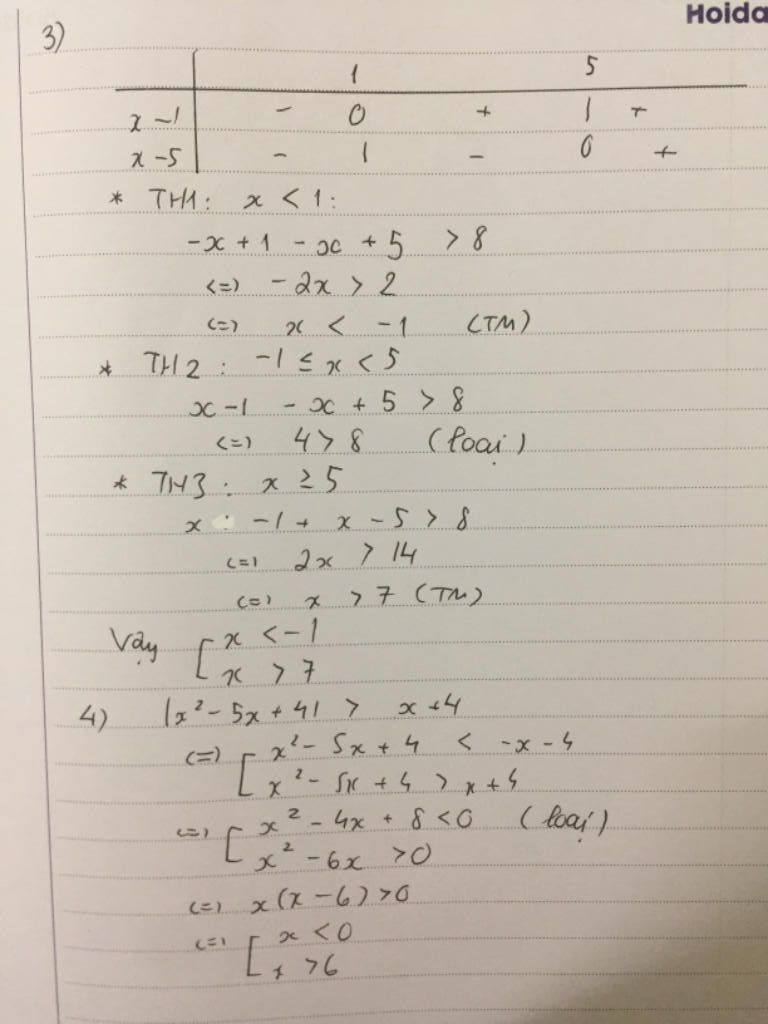 Hoida
3)
1 5
x - 1 - 0 + | +
x - 5 - | - 0 +
* TH1: x < 1:
-x + 1 - x + 5 > 8
<=> -2x > 2
<=> x < -1 (TM)
* TH2: -1 ≤ x < 5
x - 1 - x + 5 > 8
<=> 4 > 8 (loại)
* TH3: x ≥ 5
x - 1 + x - 5 > 8
<=> 2x > 14
<=> x > 7 (TM)
Vậy [ x < -1
x > 7
4) |x² - 5x + 4| > x + 4
<=> [ x² - 5x + 4 < -x - 4
x² - 5x + 4 > x + 4
<=> [ x² - 4x + 8 < 0 (loại)
x² - 6x > 0
<=> x(x - 6) > 0
<=> [ x < 0
x > 6